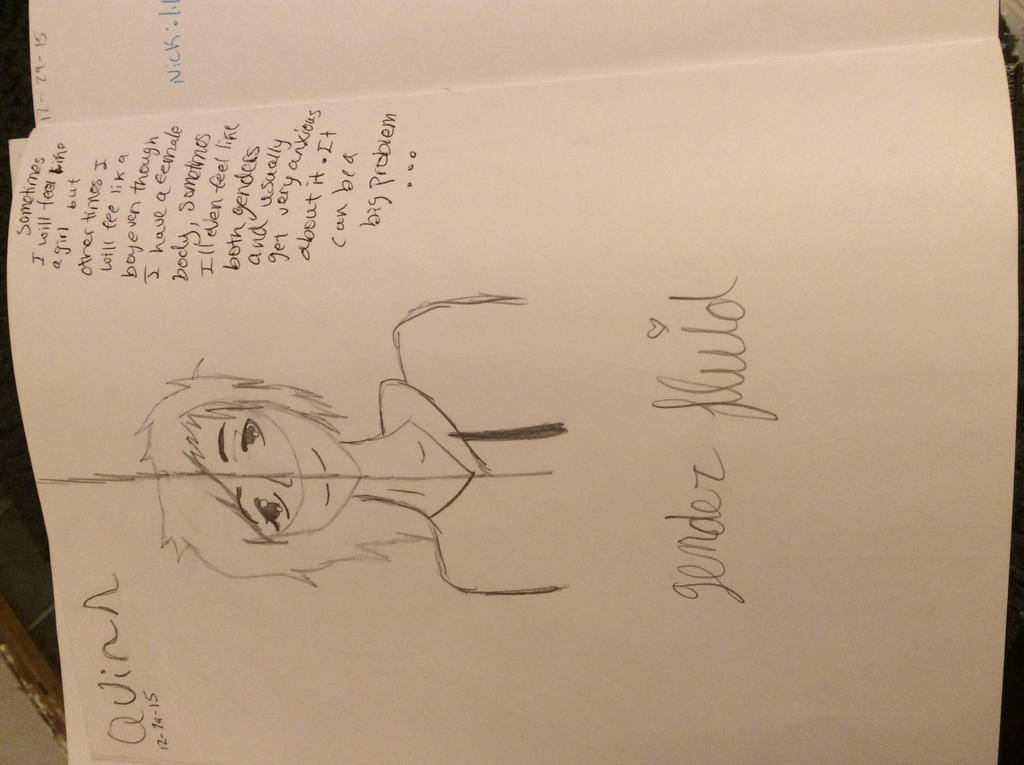 Quinn
12-29-15
Sometimes
I will feel like
a girl but
other times I
will feel like a
boy even though
I have a female
body, sometimes
I'll even feel like
both genders
and usually
get very anxious
about it. It
can be a
big problem
...
gender fluid
12-29-15